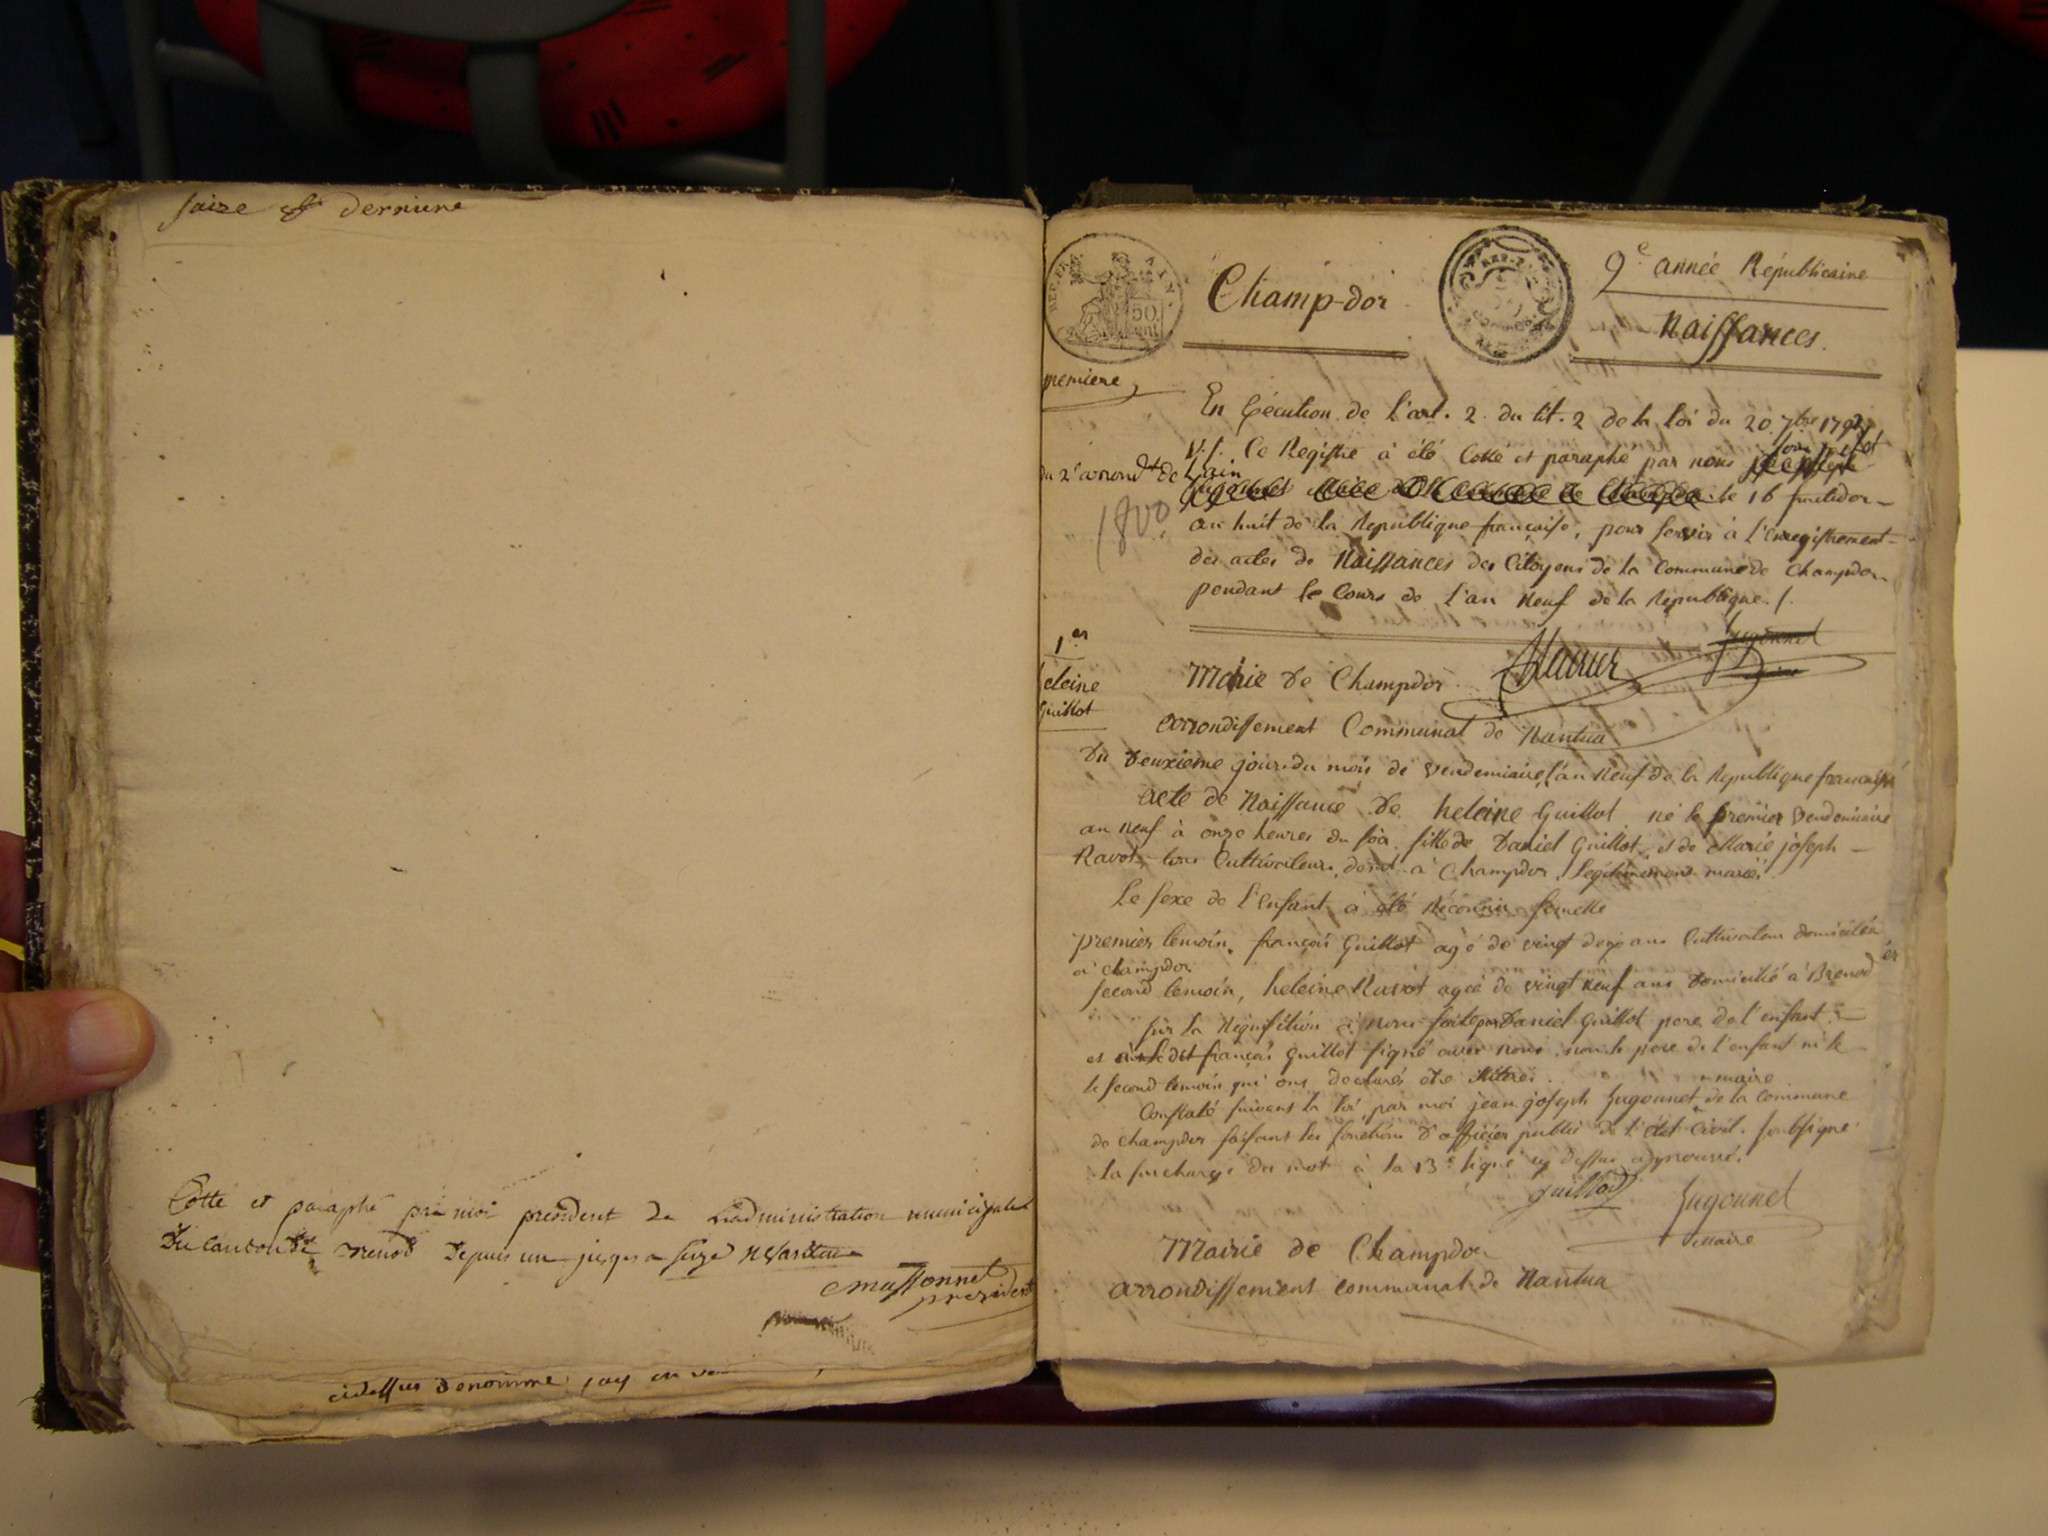 saize & derniere
Cotté et paraphé par moi president de L'administration municipale
Du canton de Brenod Depuis un jusqua seize
Massonnet
president
ci dessus denommé
REP. FRA
50
cent
Champ-dor
9e. année Républicaine
Naissances.
premiere
En Exécution de l'art. 2. du tit. 2 de la loi du 20. 7bre 1792
V.S. Ce Registre à été Cotté et paraphé par nous sous prefet
du 2e arrond.t de Lain
le 16 fructidor
1800
an huit de la Republique française, pour servir à l'enregistrement
des actes de Naissances des Citoyens de la Commune de Champdor
pendant le Cours de l'an Neuf de la Republique./.
Jugonnet
1er
heleine
Guillot
Mairie de Champdor
arrondissement Communal de Nantua
Du Deuxieme jour du mois de vendemiaire l'an Neuf de la Republique française
acte de Naissance de heleine Guillot né le premier vendemiaire
an neuf à onze heures du soir fille de Daniel Guillot et de Marie joseph
Ravot tous Cultivateurs demt. à Champdor, légitimement mariés
Le sexe de l'enfant à été Réconnu femelle
premier temoin, françois Guillot agé de vingt deux ans Cultivateur domicilié
à champdor
second temoin, heleine Ravot agée de vingt neuf ans Domicilié à Brenod
sur la Réquisition à nous faite par Daniel Guillot pere de l'enfant
et françois Guillot signé avec nous non le pere de l'enfant ni le
le second temoin qui ont declarés être
maire
Constaté suivant la loi, par moi jean joseph Jugonnet de la commune
de champdor faisant les fonctions D'officier public de l'état Civil. soussigné
la surcharge du mot à la 13e ligne cy dessus approuvé.
guillot
Jugonnet
Maire
Mairie de Champdor
arrondissement communal de Nantua